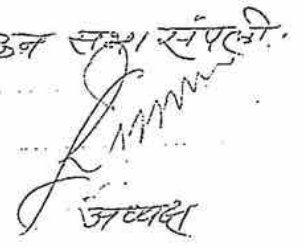 उन सभा संपली.
अध्यक्ष